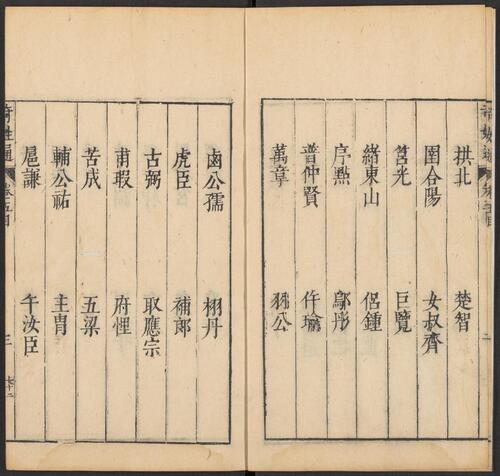 拱北 楚智
圉合陽 女叔齊
莒光 巨覽
緒東山 侶鍾
序㸃 鄔彤
普仲賢 仵瑜
萬章 羽公
鹵公孺 栩丹
虎臣 補郎
古弼 取應宗
甫瑕 府悝
苦成 五梁
輔公祐 主胄
扈謙 午汝臣
奇姓通
三